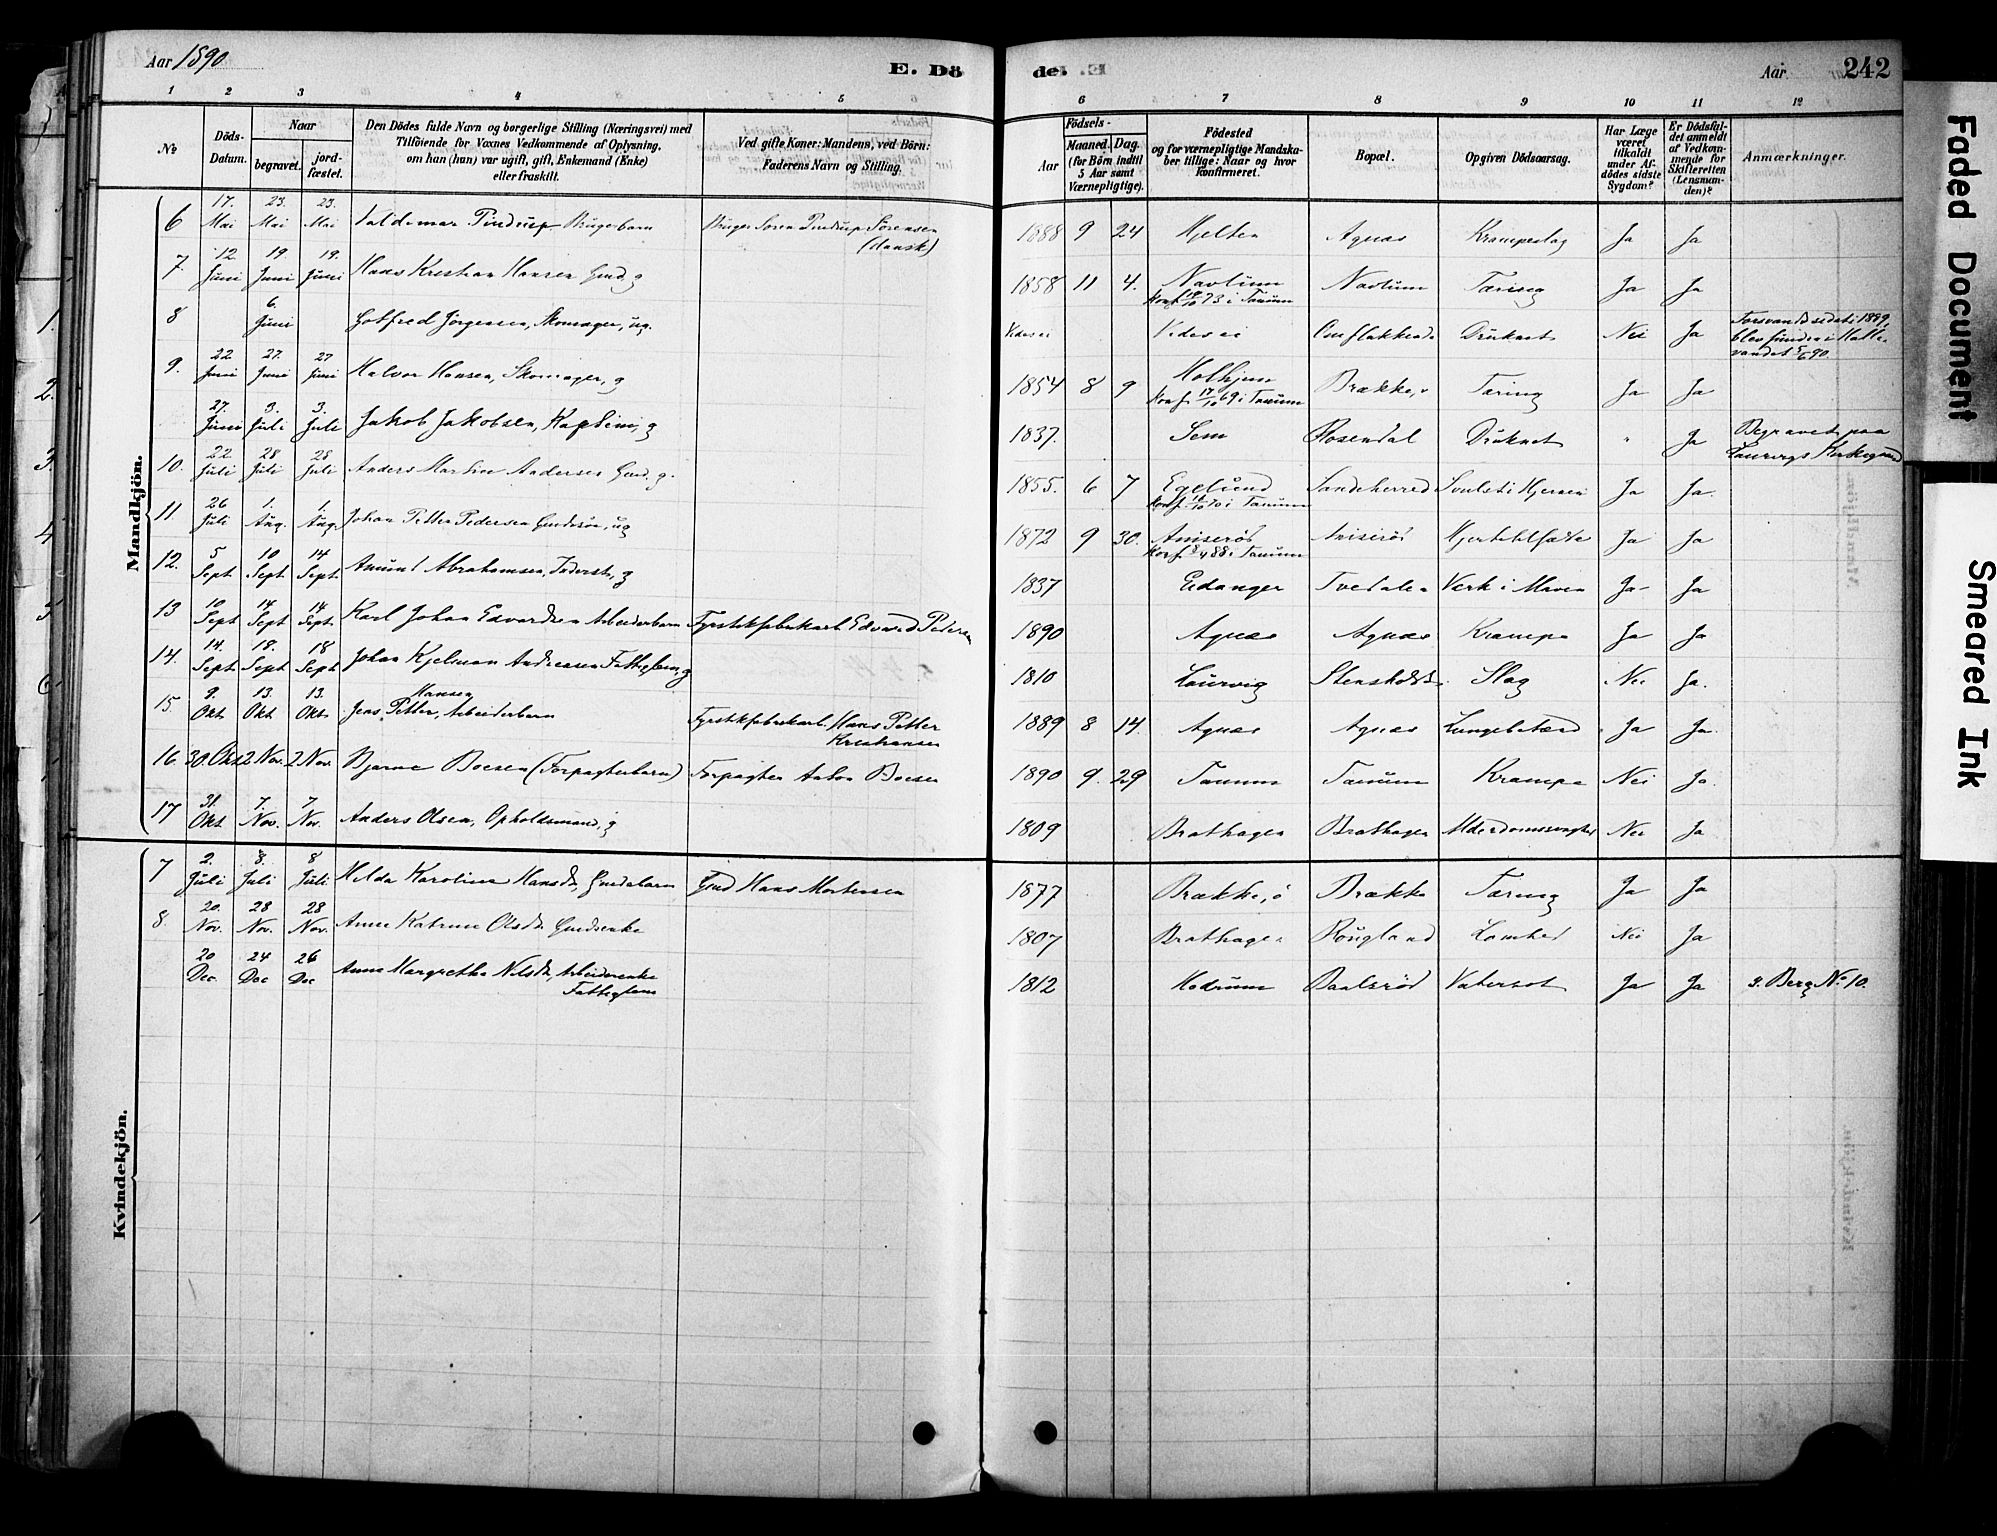 Aar 1890.
E. Dö
de.
Aar
242
1 2 3 4 5
6 7 8 9 10 11 12
No
Döds-Datum.
Naar
begravet.
jord-fæstet.
Den Dödes fulde Navn og borgerlige Stilling (Næringsvei) med
Tilföiende for Voxnes Vedkommende af Oplysning,
om han (hun) var ugift, gift, Enkemand (Enke)
eller fraskilt.
Ved gifte Koner: Mandens, ved Börn:
Faderens Navn og Stilling.
Födsels-
Aar
Maaned. Dag.
(for Börn indtil
5 Aar samt
Værnepligtige).
Födested
og for værnepligtige Mandska-
ber tillige: Naar og hvor
konfirmeret.
Bopæl.
Opgiven Dödsaarsag.
Har Læge
været
tilkaldt
under Af-
dödes sidste
Sygdom?
Er Dödsfal-
det anmeldt
af Vedkom-
mende for
Skifteretten
(Lensman-
den)?
Anmærkninger.
Mandkjön.
6 17. Mai 23. Mai 23. Mai Valdemar Pindrup Brugerbarn Bruger Sören Pindrup Sörensen (dansk) 1888 9 24 Hjelten Agnæs Krampeslag Ja Ja
7. 12. Juni 19. Juni 19. Juni Hans Kristian Hansen Gmd. g 1858 11 4. Navlum Konf. 73 i Tanum Navlum Tæring Ja Ja
8 6. Juni Gotfred Jörgensen, Skomager, ug. Druknet Nei Ja Forsvandt sidst i 1889, blev funden i Halle-vandet 5/6 90.
9. 22. Juni 27. Juni 27. Juni Halvor Hansen, Skomager, g 1854 8 9 Holhjem Konf. 69 i Tanum Brække Tæring Ja Ja
27. Juni 3. Juli 3. Juli Jakob Jakobsen, Kaptein, g 1837. Sem Rosendal Druknet " Ja Begravet paa Laurvigs Kirkegaard
10. 22 Juli 28 Juli 28 Juli Anders Martin Andersen Gmd. g. 1855. 6 7 Egelund Konf. 70 i Tanum Sandeherred Svulst i Hjernen Ja Ja.
11. 26 Juli 1. Aug. 1. Aug. Johan Petter Pedersen Gmdsön, ug 1872 9 30. Aniserös Konf. 88 i Tanum Aniserös Hjerteklfæde Ja Ja
12. 5 Sept. 10 Sept 14 Sept. Amunt Abrahamsen, Inderst, g 1837 Eidanger Tvedalen Verk i Maven Ja Ja
13 10 Sept 14 Sept 14 Sept. Karl Johan Edvardsen Arbeiderbarn Fyrstikfabrikarb. Edvard Petersen 1890 Agnæs Agnæs Krampe Ja Ja
14. 14. Sept 18. Sept 18 Sept Johan Kjelman Andreasen Fattiglem, g 1810 Laurvig Stensholt Slag Nei Ja.
15. 9. Okt 13. Okt 13. Okt. Jens Petter Hansen, Arbeiderbarn Fyrstikfabrikarb. Hans Petter Kristiansen 1889 8 14. Agnæs Agnæs Lungebetænd. Ja Ja.
16. 30. Okt 2 Nov. 2 Nov. Bjarne Boesen (Forpagterbarn) Forpagter Anton Boesen 1890 9. 29 Tanum Tanum Krampe Nei Ja.
17 31. Okt 7. Nov. 7 Nov. Anders Olsen, Opholdsmand, g 1809 Brathagen Brathagen Alderdomssvaghed Nei Ja
Kvindekjön.
7 2. Juli 8. Juli 8 Juli Hilda Karoline Hansdr, Gmdsbarn Gmd Hans Mortensen 1877 Brække, ö Brække Tæring Ja Ja
8. 20. Nov. 28 Nov. 28 Nov. Anne Katrine Olsdr Gmdsenke 1807 Brathagen Rougland Lamhed Nei Ja
20 Dec. 24 Dec 26 Dec Anne Margrethe Nilsdr, Arbeiderenke Fattiglem 1812 Hedrum Baalsröd Vatersot Ja Ja s. Berg No 10.
Faded Document
Smeared Ink